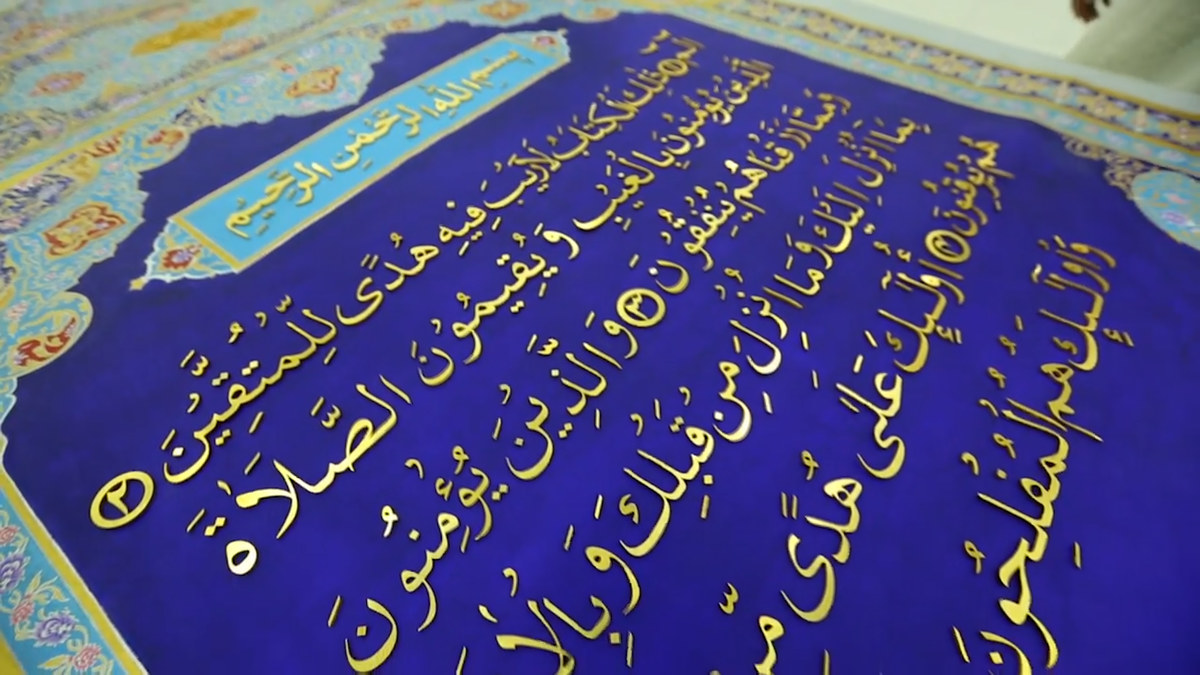 بِسْمِ اللَّهِ الرَّحْمَٰنِ الرَّحِيمِ
الٓمٓ ۝ ذَٰلِكَ الْكِتَابُ لَارَيْبَ فِيهِ هُدًى لِلْمُتَّقِيْنَ ۝٢
الَّذِينَ يُؤْمِنُونَ بِالْغَيْبِ وَيُقِيمُوْنَ الصَّلَاةَ
وَمِمَّا رَزَقْنَاهُمْ يُنْفِقُوْنَ ۝٣ وَالَّذِيْنَ يُؤْمِنُونَ
بِمَا أُنْزِلَ إِلَيْكَ وَمَا أُنْزِلَ مِنْ قَبْلِكَ وَبِالْ
هُمْ يُوقِنُونَ ۝٤ أُولَٰئِكَ عَلَىٰ هُدًى مِّن
وَأُولَٰئِكَ هُمُ الْمُفْلِحُونَ